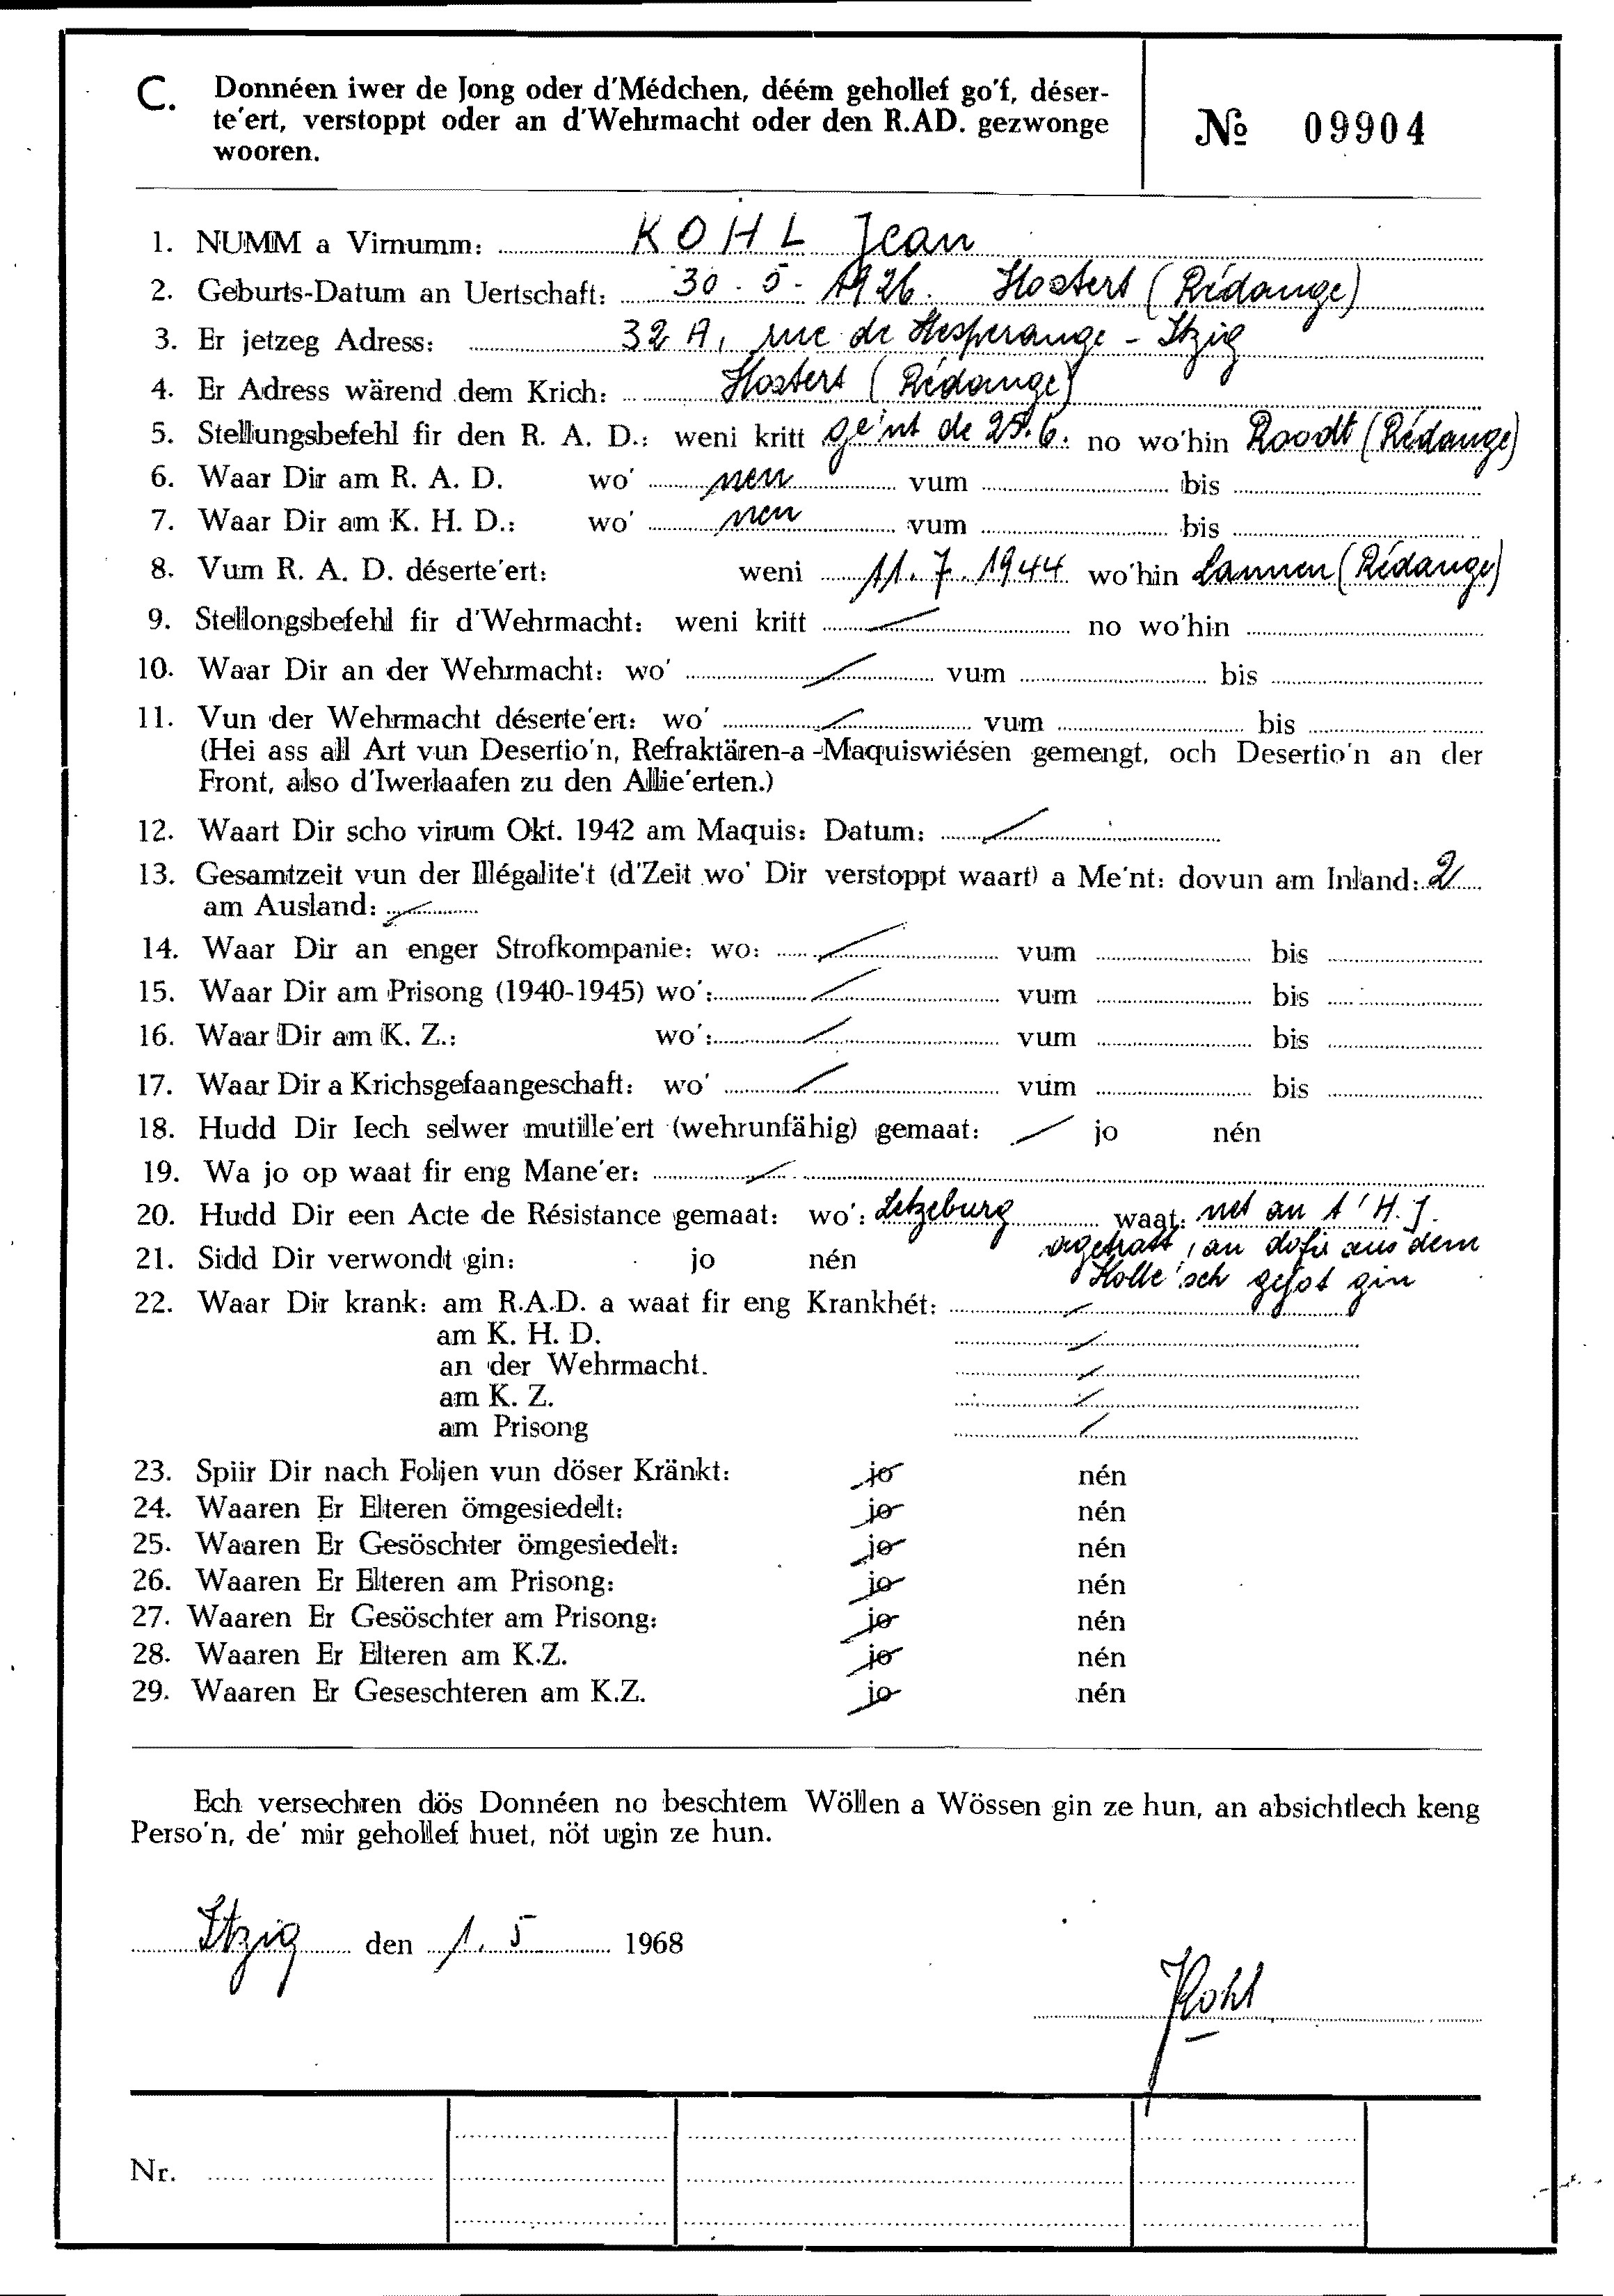 C. Donnéen iwer de Jong oder d'Médchen, déém gehollef go'f, déser-
te'ert, verstoppt oder an d'Wehrmacht oder den R.AD. gezwonge
wooren.
№ 09904
1. NUMM a Virnumm: KOHL Jean
2. Geburts-Datum an Uertschaft: 30.5.1926. Hostert (Rédange)
3. Er jetzeg Adress: 32 A, rue de Hesperange - Itzig
4. Er Adress wärend dem Krich: Hostert (Rédange)
5. Stellungsbefehl fir den R. A. D.: weni kritt ge'nt de 25.6. no wo'hin Roodt (Rédange)
6. Waar Dir am R. A. D. wo' nen vum bis
7. Waar Dir am K. H. D.: wo' nen vum bis
8. Vum R. A. D. déserte'ert: weni 11.7.1944 wo'hin Lannen (Rédange)
9. Stellongsbefehl fir d'Wehrmacht: weni kritt / no wo'hin
10. Waar Dir an der Wehrmacht: wo' / vum bis
11. Vun der Wehrmacht déserte'ert: wo' / vum bis
(Hei ass all Art vun Desertio'n, Refraktären-a-Maquiswiésen gemengt, och Desertio'n an der
Front, also d'Iwerlaafen zu den Allie'erten.)
12. Waart Dir scho virum Okt. 1942 am Maquis: Datum: /
13. Gesamtzeit vun der Illégalite't (d'Zeit wo' Dir verstoppt waart) a Me'nt: dovun am Inland: 2
am Ausland: /
14. Waar Dir an enger Strofkompanie: wo: / vum bis
15. Waar Dir am Prisong (1940-1945) wo': / vum bis
16. Waar Dir am K. Z.: wo': / vum bis
17. Waar Dir a Krichsgefaangeschaft: wo' / vum bis
18. Hudd Dir Iech selwer mutille'ert (wehrunfähig) gemaat: / jo nén
19. Wa jo op waat fir eng Mane'er: /
20. Hudd Dir een Acte de Résistance gemaat: wo': Letzeburg waat: net an t'H.J.
agetratt, an dofir aus dem
21. Sidd Dir verwondt gin: jo nén
Kolle'sch gejot gin
22. Waar Dir krank: am R.A.D. a waat fir eng Krankhét: /
am K. H. D. /
an der Wehrmacht. /
am K. Z. /
am Prisong /
23. Spiir Dir nach Foljen vun döser Kränkt: jo nén
24. Waaren Er Elteren ömgesiedelt: jo nén
25. Waaren Er Gesöschter ömgesiedelt: jo nén
26. Waaren Er Elteren am Prisong: jo nén
27. Waaren Er Gesöschter am Prisong: jo nén
28. Waaren Er Elteren am K.Z. jo nén
29. Waaren Er Geseschteren am K.Z. jo nén
Ech versechren dös Donnéen no beschtem Wöllen a Wössen gin ze hun, an absichtlech keng
Perso'n, de' mir gehollef huet, nöt ugin ze hun.
Itzig den 1. 5 1968
JKohl
Nr.